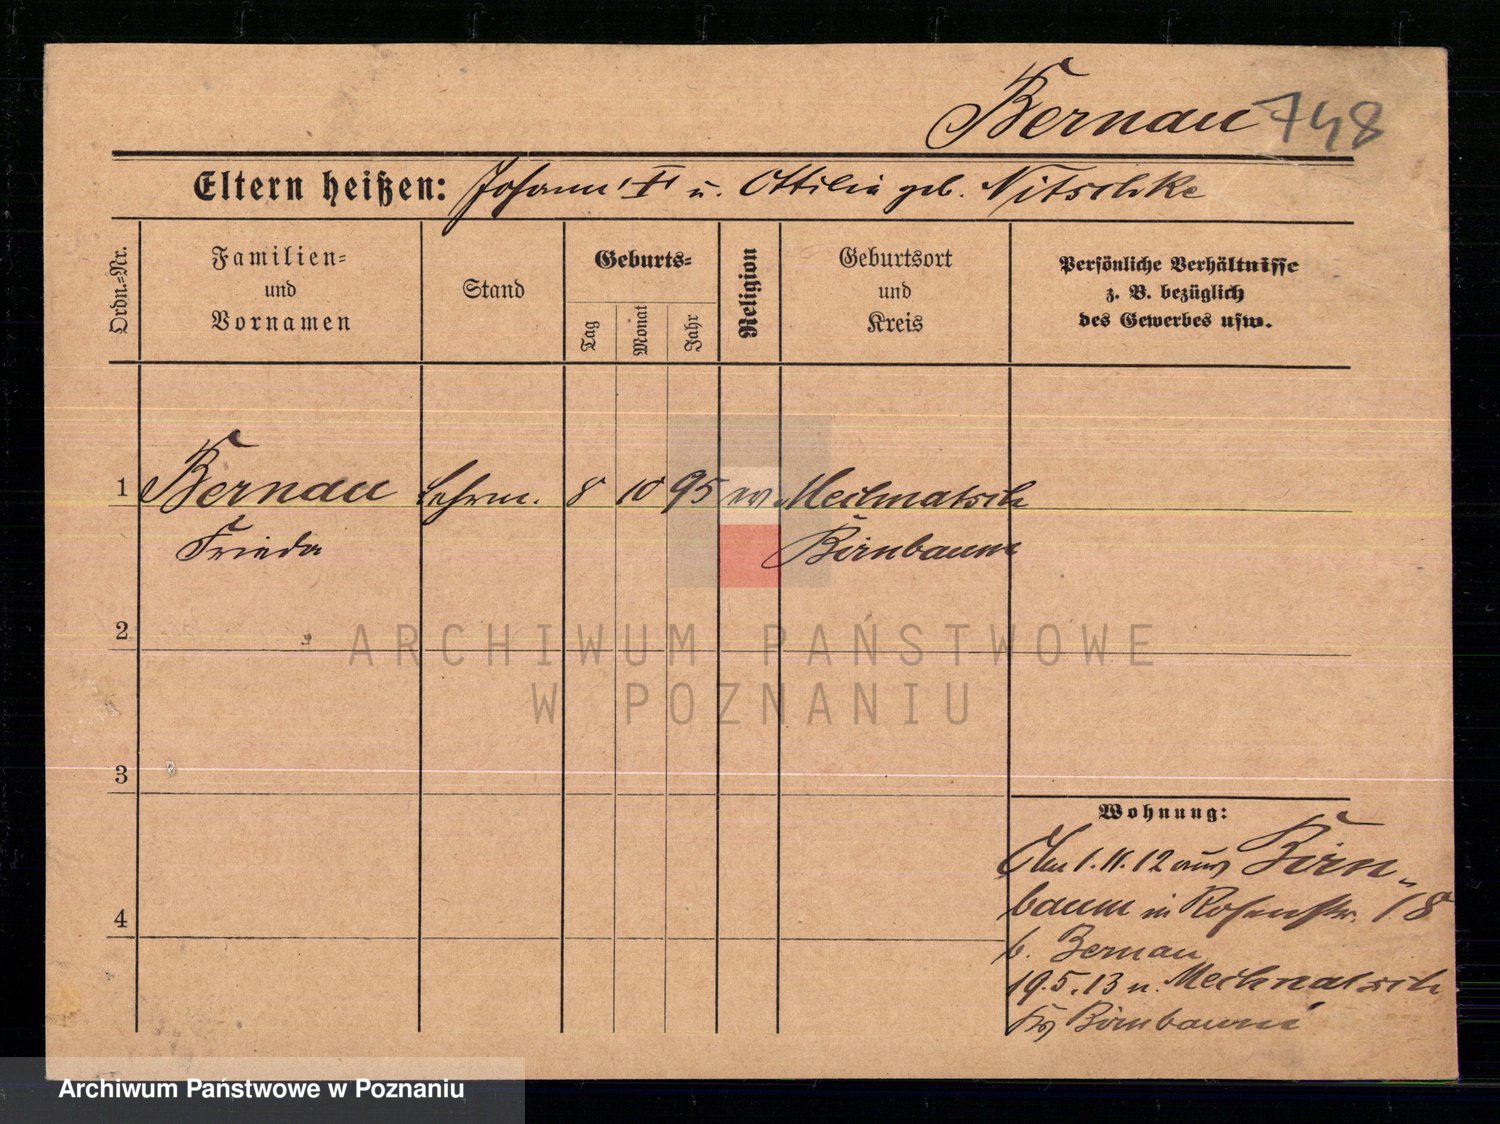 Bernau 748
Eltern heißen: Johann "†" u. Ottilie geb. Nitschke
Ordn.=Nr.
Familien=
und
Vornamen
Stand
Geburts=
Tag
Monat
Jahr
Religion
Geburtsort
und
Kreis
Persönliche Verhältnisse
z. B. bezüglich
des Gewerbes usw.
1 Bernau Lehrm. 8 10 95 ev Meilnatsch
Frieda Birnbaum
2
ARCHIWUM PAŃSTWOWE
W POZNANIU
3
Wohnung:
Am 1.11.12 aus Birn-
4
baum in Rosenstr. 18
b. Bernau
19.5.13 n. Meilnatsch
Krs Birnbaum
Archiwum Państwowe w Poznaniu